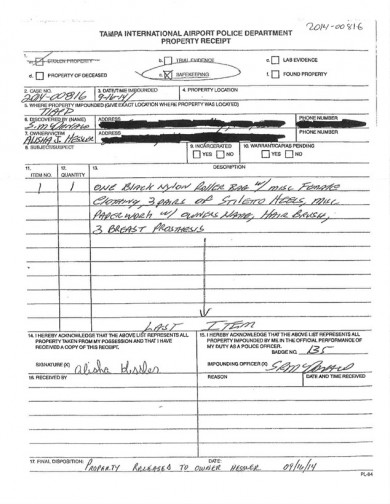 2014-00816
TAMPA INTERNATIONAL AIRPORT POLICE DEPARTMENT
PROPERTY RECEIPT
a. STOLEN PROPERTY b. TRIAL EVIDENCE c. LAB EVIDENCE
d. PROPERTY OF DECEASED e. SAFEKEEPING f. FOUND PROPERTY
2. CASE NO. 3. DATE/TIME IMPOUNDED 4. PROPERTY LOCATION
2014-00816 9-16-14
5. WHERE PROPERTY IMPOUNDED (GIVE EXACT LOCATION WHERE PROPERTY WAS LOCATED)
TIAPD
6. DISCOVERED BY (NAME) ADDRESS PHONE NUMBER
7. OWNER/VICTIM ADDRESS PHONE NUMBER
ALISHA HESSLER
8. SUBJECT/SUSPECT 9. INCARCERATED 10. WARRANT/CAPIAS PENDING
YES NO YES NO
11. 12. 13.
ITEM NO. QUANTITY DESCRIPTION
1 1 ONE BLACK NYLON ROLLER BAG W/ MISC FEMALE
CLOTHING, 3 PAIRS OF STILETO HEELS, MISC
PAPERWORK W/ OWNERS NAME, HAIR BRUSH,
3 BREAST PROSTHESIS
LAST ITEM
14. I HEREBY ACKNOWLEDGE THAT THE ABOVE LIST REPRESENTS ALL
PROPERTY TAKEN FROM MY POSSESSION AND THAT I HAVE
RECEIVED A COPY OF THIS RECEIPT.
SIGNATURE (X) Alisha Hessler
15. I HEREBY ACKNOWLEDGE THAT THE ABOVE LIST REPRESENTS ALL
PROPERTY IMPOUNDED BY ME IN THE OFFICIAL PERFORMANCE OF
MY DUTY AS A POLICE OFFICER.
BADGE NO. 135
IMPOUNDING OFFICER (X)
16. RECEIVED BY REASON DATE AND TIME RECEIVED
17. FINAL DISPOSITION: DATE:
PROPERTY RELEASED TO OWNER HESSLER 09/16/14
PL-94